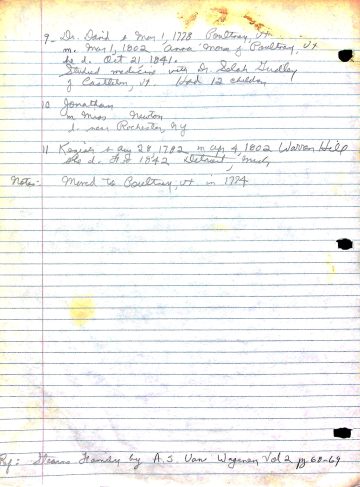 9- Dr. David b Mar 1, 1778 Poultney, Vt.
m. Mar 1, 1802 Anna Morse of Poultney, Vt
he d. Oct 21 1841.
Studied medicine with Dr. Selah Gridley
of Castleton, Vt. Had 12 children
10 Jonathan
m Miss Newton
d. near Rochester, NY
11 Keziah b Aug 28, 1782 m Apr 4 1802 Warren Hill
she d. 1842 Detroit, Mich
Notes:- Moved to Poultney, Vt in 1774
Ref: Stearns Family by A.S. Van Wagenen Vol 2 pg 68-69